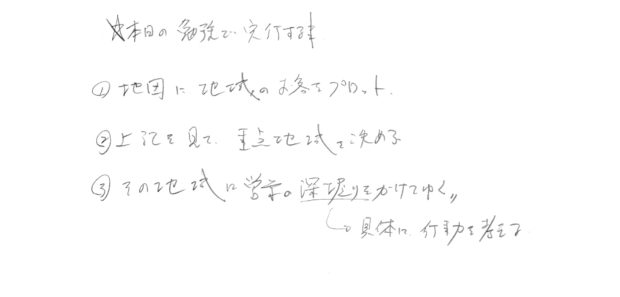 ☆本日の勉強で実行する事
① 地図に地域のお客をプロット.
② 上記を見て、重点地域を決める
③ その地域に営業の深堀りをかけてゆく〃
具体に、行動を考える